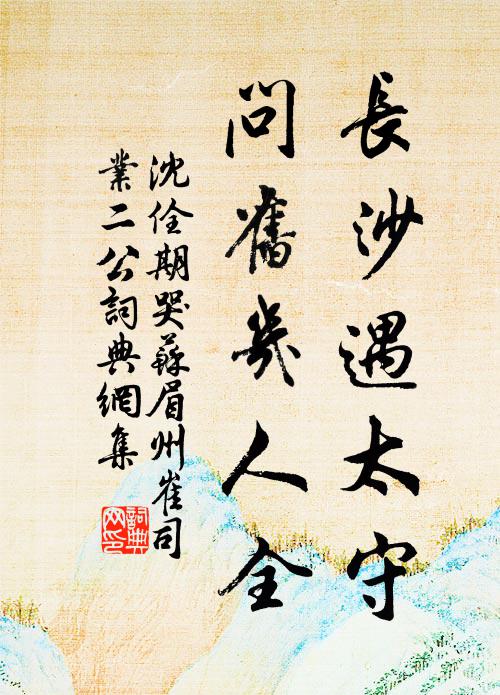 長沙遇太守
問舊幾人全
沈佺期哭蘇眉州崔司
業二公詞典網集
詞典網印